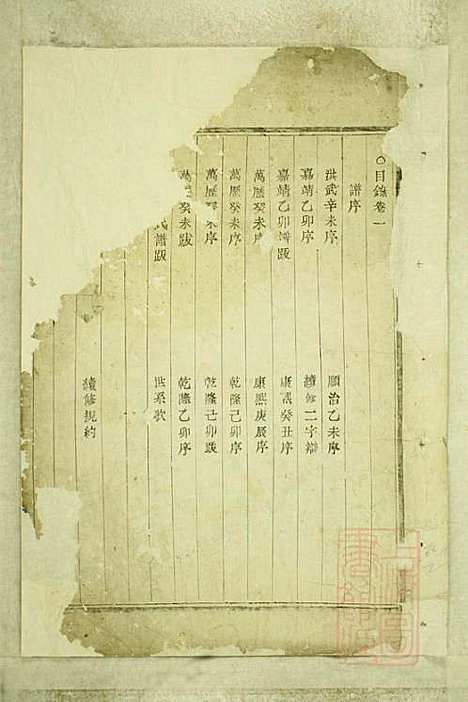 ○目錄卷一
譜序
洪武辛未序 順治乙未序
嘉靖乙卯序 續修二字辯
嘉靖乙卯譜跋 康熙癸丑序
萬歷癸未序 康熙庚辰序
萬歷癸未序 乾隆己卯序
萬歷癸未序 乾隆己卯跋
萬歷癸未跋 乾隆乙卯序
氏譜跋 世系歌
續修規約